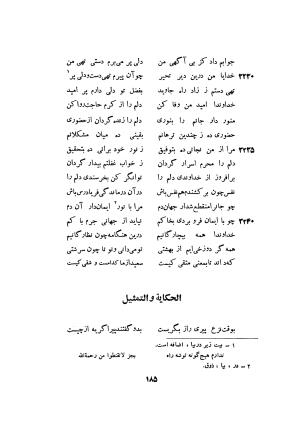 جوابم داد کز بی آگهی من دلی پر می‌برم دستی تهی من
۳۲۳۰ خدایا من درین دیر تحیر چو آن پیرم تهی‌دست و دلی پر۱
تهی دستم ز زاد راه جاوید بفضل تو دلی دارم پر امید
خداوندا امید من وفا کن دلم را از کرم حاجت روا کن
منور دار جانم را بنوری دلم را زنده گردان از حضوری
حضوری ده ز چندین ترهاتم یقینی ده میان مشکلاتم
۳۲۳۵ مرا از من نجاتی ده بتوفیق ز نور خود براتی ده بتحقیق
دلم را محرم اسرار گردان ز خواب غفلتم بیدار گردان
برافروز از خداوندی دلم را توانگر کن بخرسندی دلم را
نفس چون بر کشندم هم‌نفس باش در آن درماندگی فریادرس باش
چو جانم منقطع شد از جهان دم مرا با تو۲ ایمان دار آن دم
۳۲۴۰ چو با ایمان فرو بردی بخاکم نیاید از جهانی جرم با کم
خداوندا همه بیچارگانیم درین هنگامه چون نظارگانیم
همه گر دوزخی‌ایم از بهشتی تو می‌دانی و تو تا چون سرشتی
که داند تا بمعنی متقی کیست سعید از ما کدامست و شقی کیست
الحکایة و التمثیل
بوقت نزع پیری زار بگریست بدو گفتند پیرا گریه از چیست
۱ ــ بیت زیر در بیا، اضافه است.
ندارم هیچ گونه توشه راه بجز لاتقنطوا من رحمةالله
۲ ــ مر، بیا، ذوق.
۱۸۵